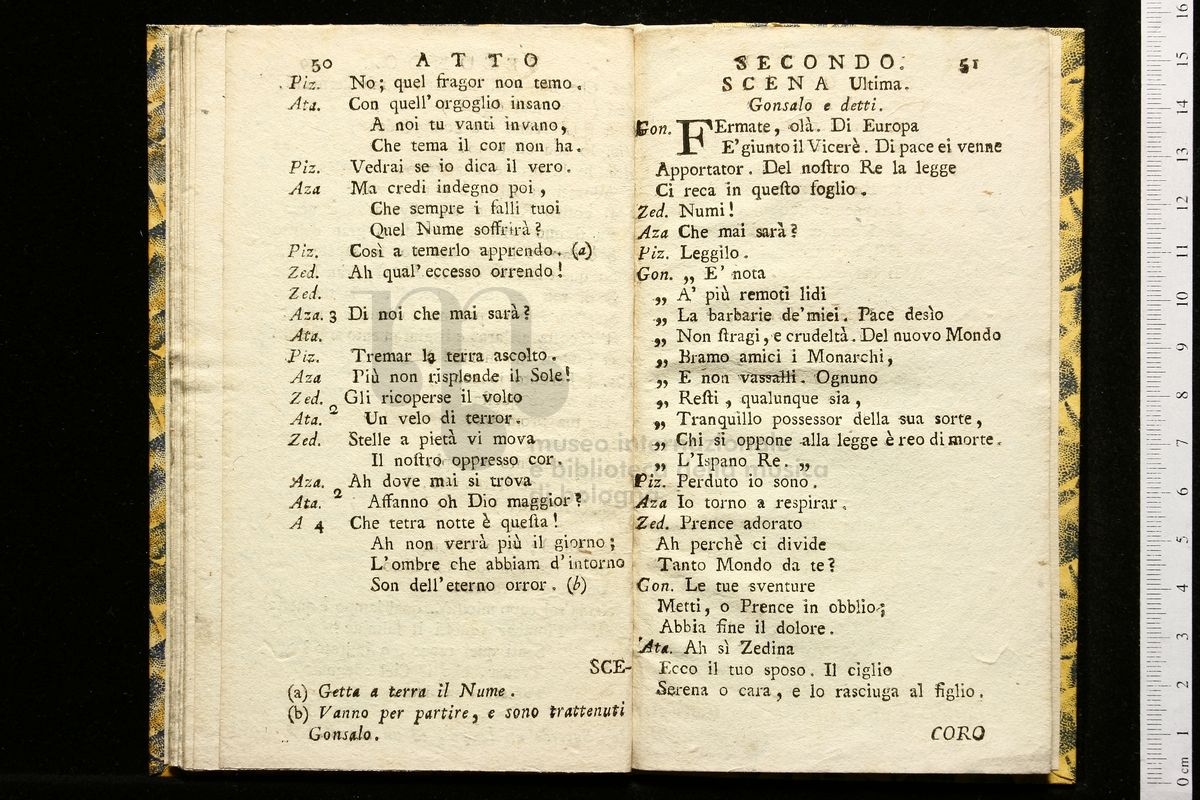 50 ATTO
Piz. No; quel fragor non temo.
Ata. Con quell' orgoglio insano
A noi tu vanti invano,
Che tema il cor non ha.
Piz. Vedrai se io dica il vero.
Aza Ma credi indegno poi,
Che sempre i falli tuoi
Quel Nume soffrirà?
Piz. Così a temerlo apprendo. (a)
Zed. Ah qual' eccesso orrendo!
Zed.
Aza. 3 Di noi che mai sarà?
Ata.
Piz. Tremar la terra ascolto.
Aza Più non risplende il Sole!
Zed. Gli ricoperse il volto
2
Ata. Un velo di terror.
Zed. Stelle a pietà vi mova
Il noſtro oppresso cor.
Aza. Ah dove mai si trova
2
Ata. Affanno oh Dio maggior?
A 4 Che tetra notte è queſta!
Ah non verrà più il giorno;
L'ombre che abbiam d'intorno
Son dell'eterno orror. (b)
SCE-
(a) Getta a terra il Nume.
(b) Vanno per partire, e sono trattenuti
Gonsalo.
SECONDO. 51
SCENA Ultima.
Gonsalo e detti.
Gon. FErmate, olà. Di Europa
E' giunto il Vicerè. Di pace ei venne
Apportator. Del noſtro Re la legge
Ci reca in queſto foglio.
Zed. Numi!
Aza Che mai sarà?
Piz. Leggilo.
Gon. „ E' nota
„ A' più remoti lidi
„ La barbarie de' miei. Pace desìo
„ Non ſtragi, e crudeltà. Del nuovo Mondo
„ Bramo amici i Monarchi,
„ E non vassalli. Ognuno
„ Reſti, qualunque sia,
„ Tranquillo possessor della sua sorte,
„ Chi si oppone alla legge è reo di morte.
„ L'Ispano Re. „
Piz. Perduto io sono.
Aza Io torno a respirar.
Zed. Prence adorato
Ah perchè ci divide
Tanto Mondo da te?
Gon. Le tue sventure
Metti, o Prence in obblio;
Abbia fine il dolore.
Ata. Ah sì Zedina
Ecco il tuo sposo. Il ciglio
Serena o cara, e lo rasciuga al figlio.
CORO
museo internazionale
e biblioteca della musica
di bologna
0 cm 1 2 3 4 5 6 7 8 9 10 11 12 13 14 15 16